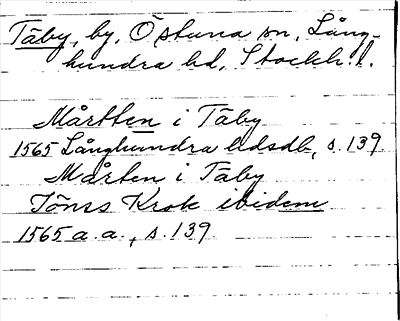 Täby, by, Östuna sn, Lång-
hundra hd, Stockh. l.
Mårtten i Täby
1565 Långhundra hdsdb, s. 139
Mårten i Täby
Jönss Krok ibidem
1565 a. a., s. 139